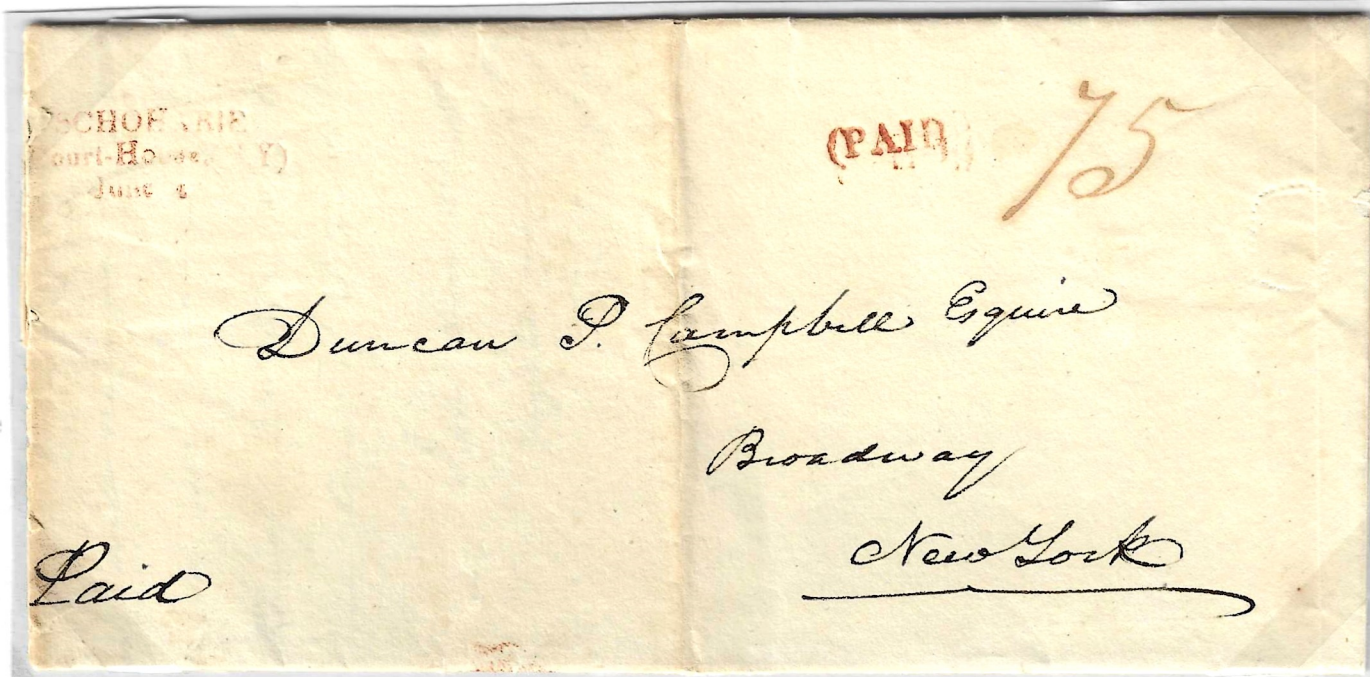 SCHOHARIE
Court-House, (N.Y)
June
(PAID)
75
Duncan P. Campbell Esquire
Broadway
New York
Paid